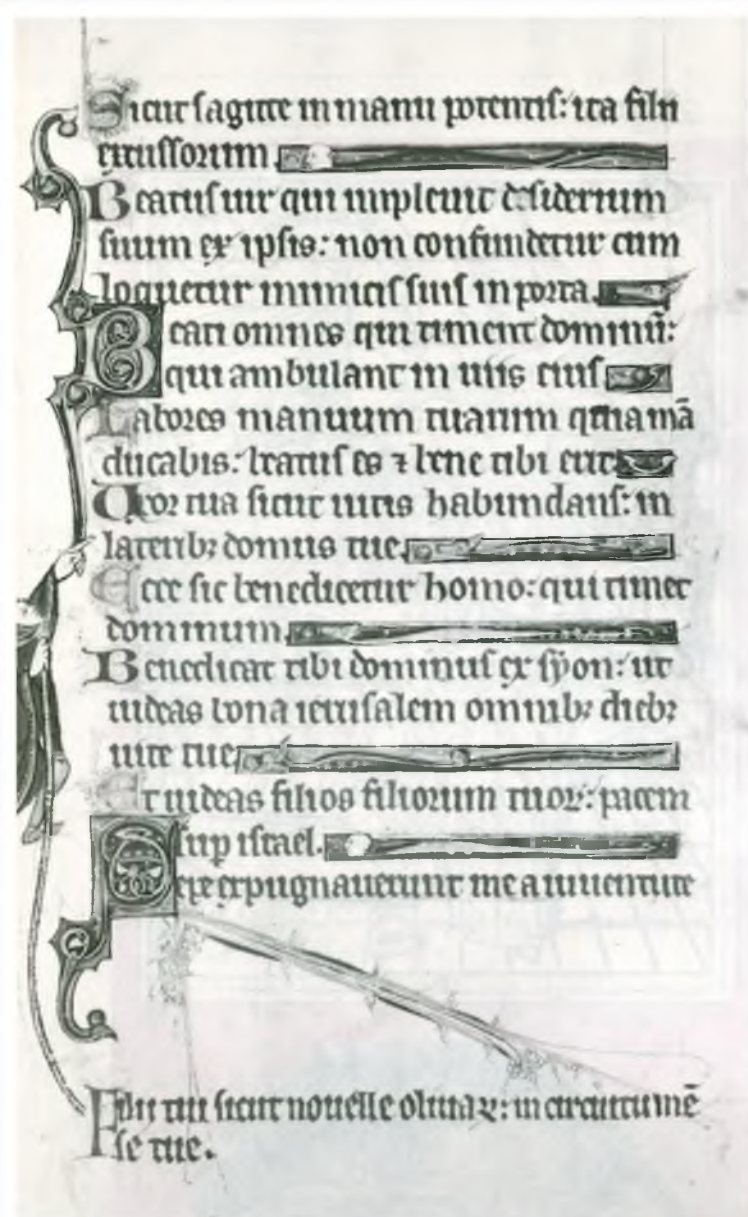 Sicut sagitte in manu potentis: ita filii
excussorum.
Beatus uir qui impleuit desiderium
suum ex ipsis: non confundetur cum
loquetur inimicis suis in porta.
Beati omnes qui timent dominū:
qui ambulant in uiis eius.
Labores manuum tuarum quia mā
ducabis: beatus es ⁊ bene tibi erit.
Uxor tua sicut uitis habundans: in
laterib; domus tue.
Ecce sic benedicetur homo: qui timet
dominum.
Benedicat tibi dominus ex syon: ut
uideas bona ierusalem omnib; dieb;
uite tue.
Et uideas filios filiorum tuoꝝ: pacem
sup israel.
Sepe expugnauerunt me a iuuentute
Filii tui sicut nouelle oliuaꝝ: in circuitu mē
se tue.